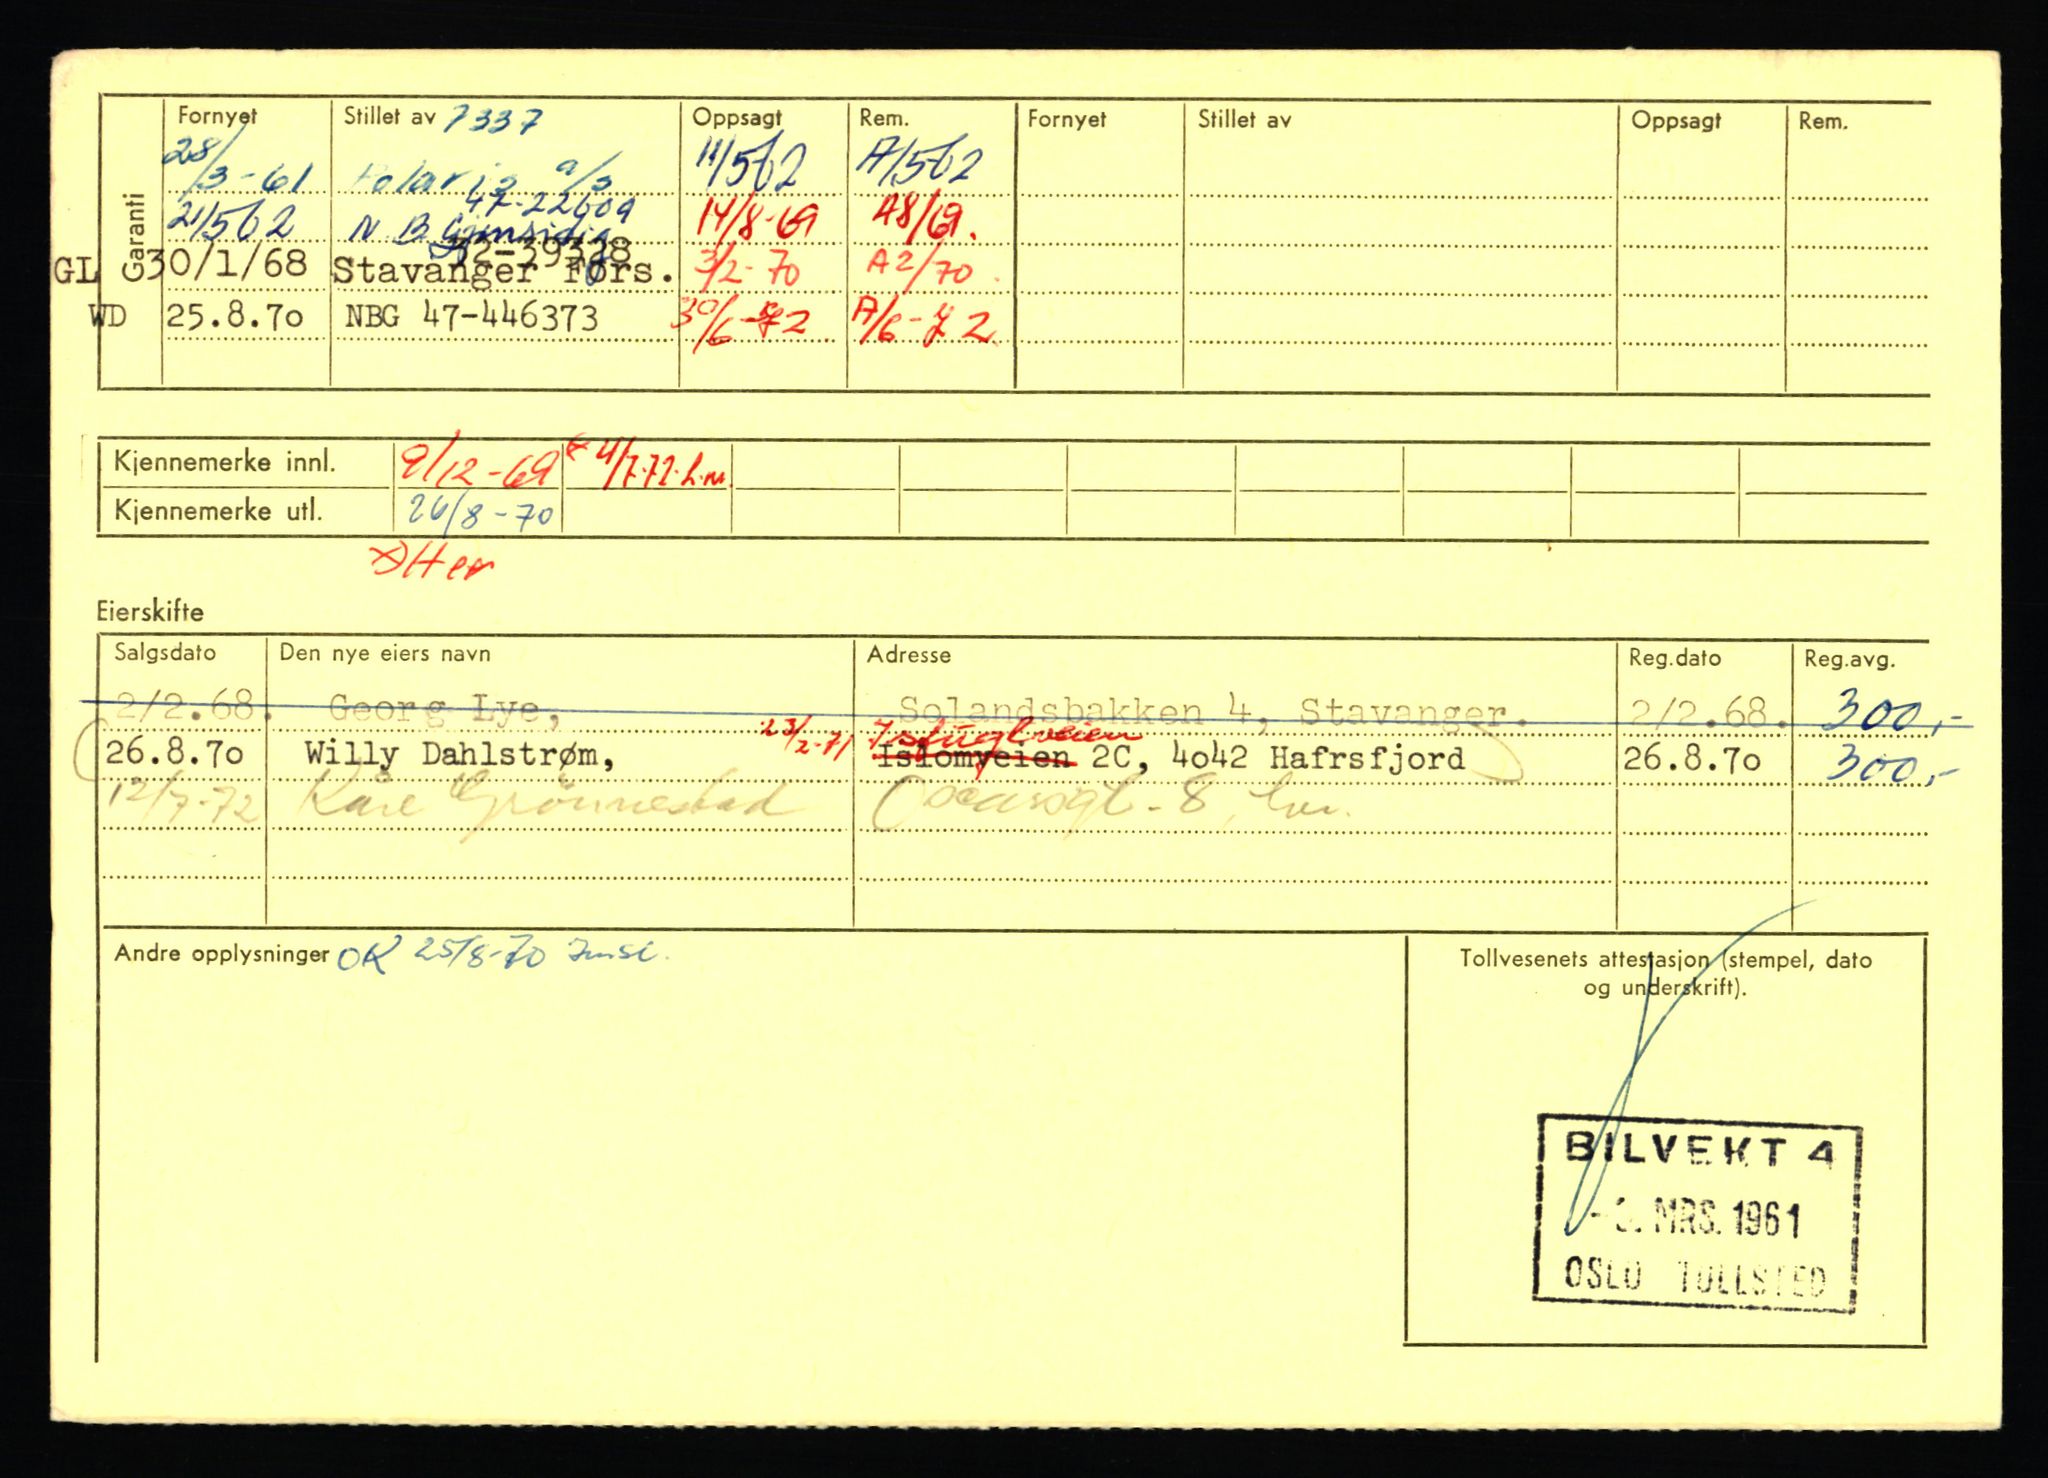 Garanti
Fornyet Stillet av 7337 Oppsagt Rem. Fornyet Stillet av Oppsagt Rem.
28/3-61 Polaris a/s 11/5 62 A/5 62
21/5 62 N B Gjensidig 14/8-69 A8/69.
GL 30/1/68 Stavanger Førs. 32-39328 3/2-70 A2/70.
WD 25.8.7o NBG 47-446373 30/6-72 A/6-72
Kjennemerke innl. 9/12-69 4/7-72
Kjennemerke utl. 26/8-70
Eierskifte
Salgsdato Den nye eiers navn Adresse Reg.dato Reg.avg.
2/2.68. Georg Lye, Solandsbakken 4, Stavanger. 2/2.68. 300,-
23/2-71 Isfuglveien
26.8.7o Willy Dahlstrøm, Islomveien 2C, 4o42 Hafrsfjord 26.8.7o 300,-
12/7-72 Kåre Grønnestad 8, her.
Andre opplysninger OK 25/8-70
Tollvesenets attestasjon (stempel, dato
og underskrift).
BILVEKT 4
MRS. 1961
OSLO TOLLSTED